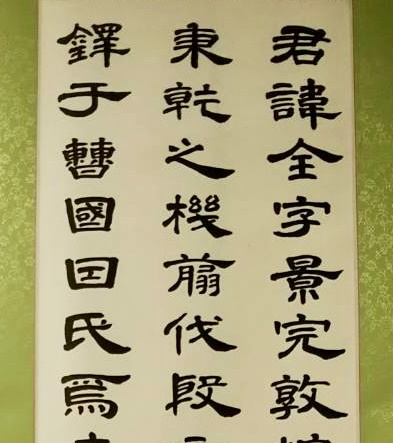 君諱全字景完敦
秉乾之機翦伐殷
鐸于曹國因氏焉